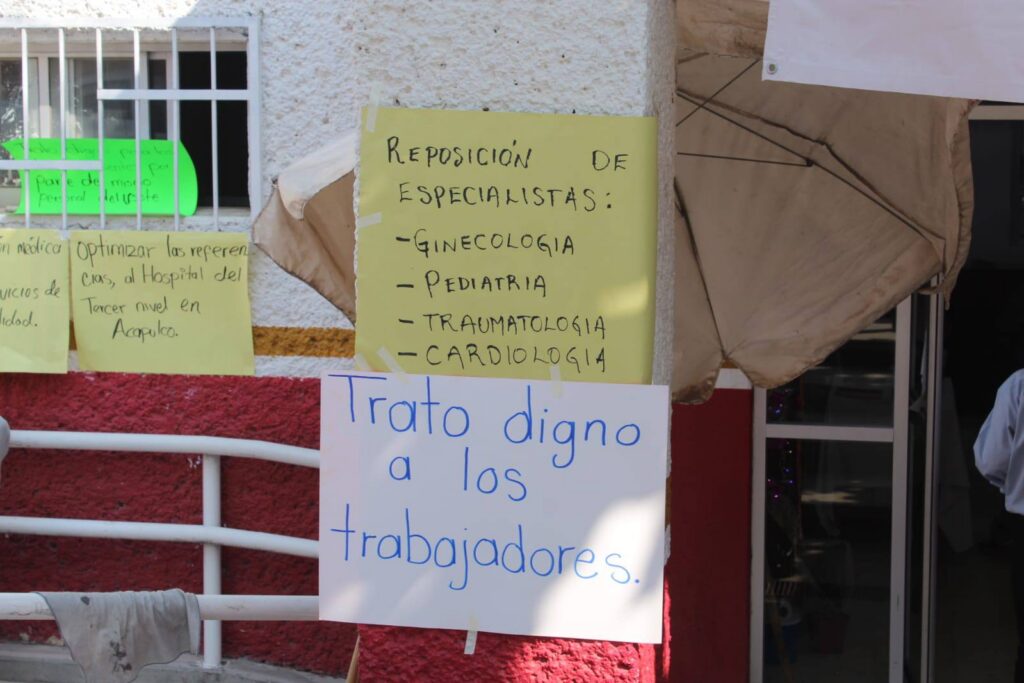 parte de mismo
personal
médica
vicios de
lidad.
Optimizar las referen
cias, al Hospital del
Tercer nivel en
Acapulco.
REPOSICIÓN DE
ESPECIALISTAS:
- GINECOLOGIA
- PEDIATRIA
- TRAUMATOLOGIA
- CARDIOLOGIA
Trato digno
a los
trabajadores.